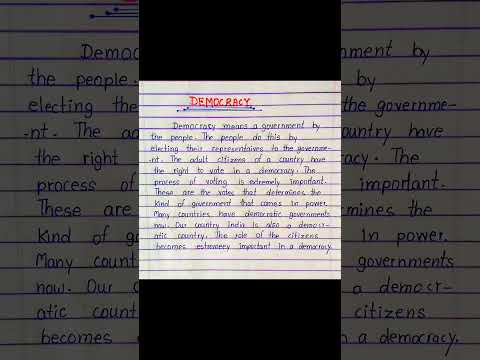 DEMOCRACY
Democracy means a government by
the people. The people do this by
electing their representatives to the governme-
-nt. The adult citizens of a country have
the right to vote in a democracy. The
process of voting is extremely important.
These are the votes that determines the
kind of government that comes in power.
Many countries have democratic governments
now. Our country India is also a democr-
atic country. The role of the citizens
becomes extremely important in a democracy.